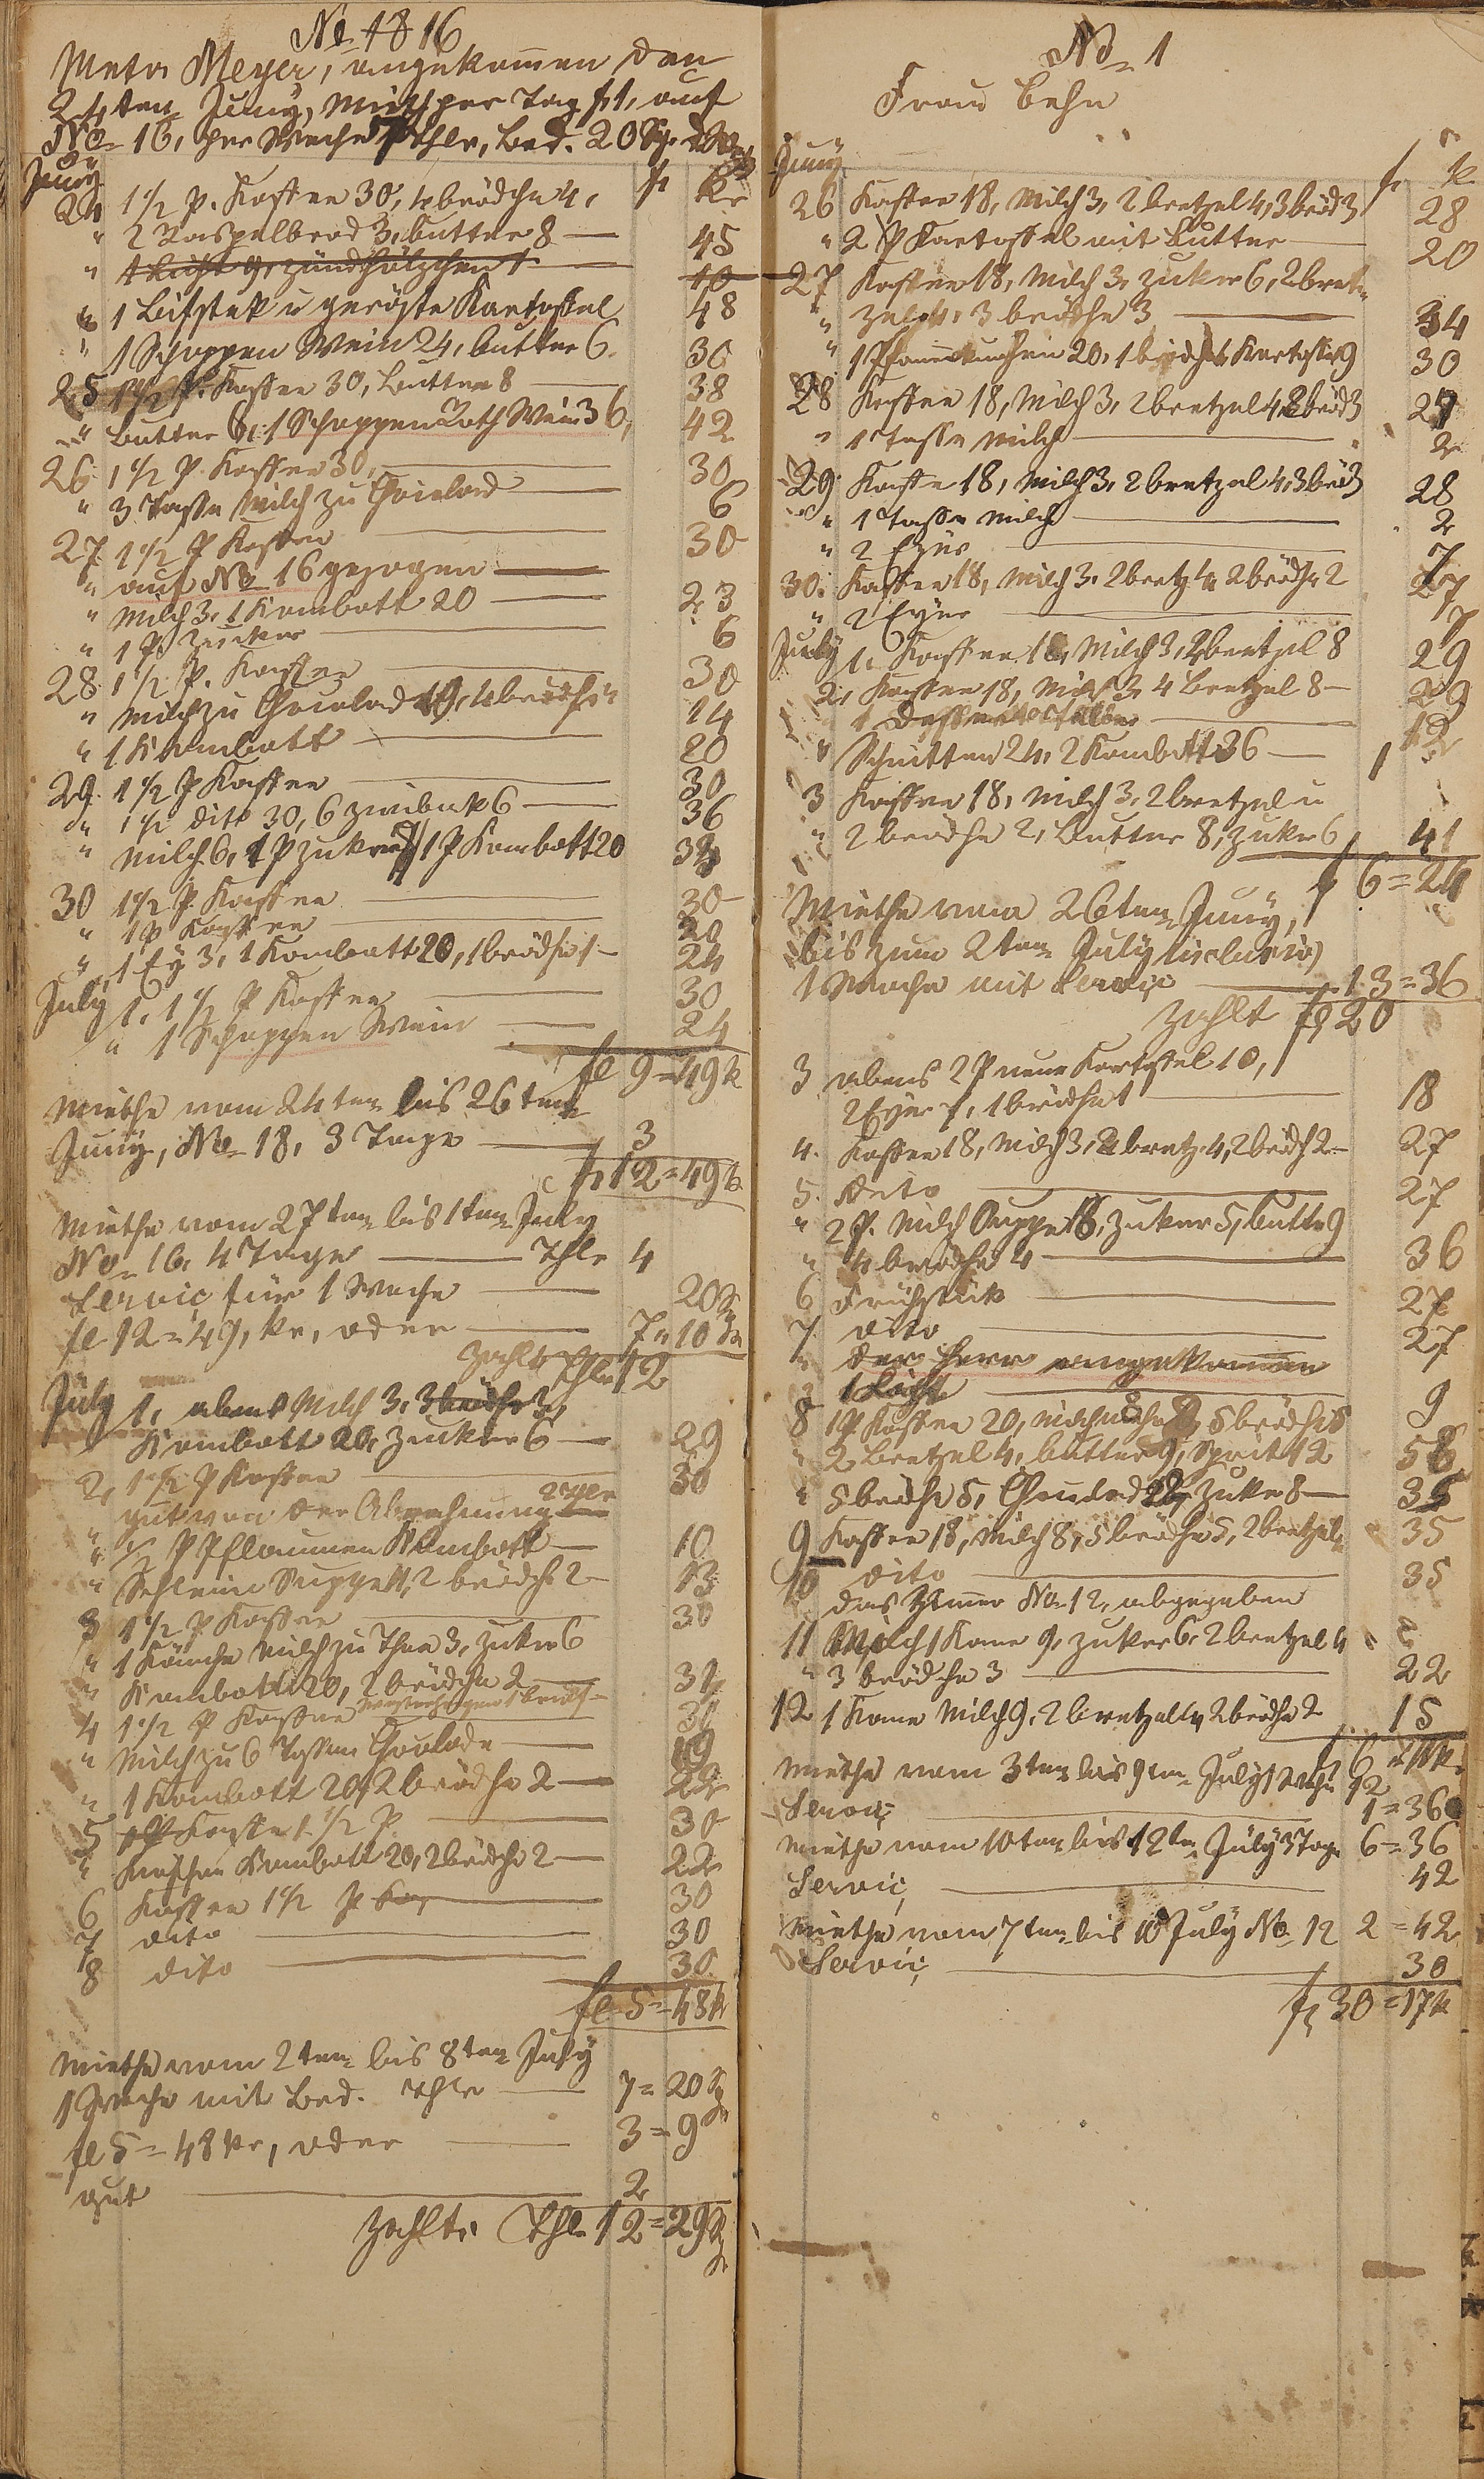 No 18 16
Meta Meyer, angekom̄en den
24ten Juny, Mieth per Tag fl 1, auf
No 16, per Woche 7 Thlr, Bed. 20 Sgr
Juny fl kr
24 1 1/2 P. Kaffee 30, 4 brödchen 4,
" 2 Raspelbrod 3, butter 8 — 45
" 1 Licht 9, zündhölzchen 1 — 10
" 1 Bifstek u geröste Kartoffel 48
" 1 Schoppen Wein 24, butter 6. 30
25 1 1/2 P. Kaffee 30, Butter 8 — 38
" butter 6, 1 Schoppen Roth Wein 36, 42
26 1 1/2 P. Kaffee 30, — 30
" 3 Tasse Milch zu Chocolad — 6
27 1 1/2 P Kaffee — 30
" auf No 16 gezogen —
" Milch 3, 1 Kombott 20 — 23
" 1 P. Zucker — 6
28 1 1/2 P. Kaffee — 30
" Milch zu Chocolad 19, 4 brödch 14
" 1 Kombott — 20
29 1 1/2 P Kaffee — 30
" 1 1/2 dito 30, 6 zwibak 6 — 36
" Milch 6, 1 P zuker 1 P Kombott 20
30 1 1/2 P. Kaffee — 30
" 1 P Kaffee — 20
" 1 Ey 3, 1 Kombott 20, 1 brödch 1 — 24
July 1. 1 1/2 P Kaffee — 30
" 1 Schoppen Wein — 24
fl 9 = 49 k
Miethe vom 24ten bis 26ten
Juny, No 18, 3 Tage — 3
fl 12 = 49 k
Miethe vom 27ten bis 1ten July
No 16, 4 Tage — Thlr 4
Servic für 1 Woche — 20 Sg
fl 12 = 49, kr, oder — 7 " 10 Sg
zahlt Thlr 12
July 1, abend Milch 3, 3 brödche 3,
Kombott 20, Zucker 6 — 29
2, 1 1/2 P Kaffee — 30
gut von der Abrechnung
" 1/2 P Pflaumen Kombott — 10
" Schleim Suppe 11, 2 brödche 2 — 13
3 1 1/2 P Kaffee — 30
" 1 Känche Milch zu Thee 3, Zuker 6
" Kombott 20, 2 brödche 2 — 31
4 1 1/2 P Kaffee — 30
" Milch zu 6 Tassen Chocolade — 19
" 1 Kombott 20, 2 brödche 2 — 22
5 1 P Kaffee 1 1/2 P — 30
" Kirschen Kombott 20, 2 brödche 2 — 22
6 Kaffee 1 1/2 P — 30
7 dito — 30
8 dito — 30
fl 5 = 48 k
Miethe vom 2ten bis 8ten July
1 Woche mit Bed. Thlr — 7 = 20 Sg
fl 5 = 48 kr, oder — 3 = 9
gut — 2
zahlt. Thlr 12 = 29 Sg
No 1
Frau Behn
Juny fl k
26 Kaffee 18, Milch 3, 2 bretzel 4, 3 bröd 3 28
" 2 P Kartoffel mit Butter — 20
27 Kaffee 18, Milch 3, zuker 6, 2 bret-
" zel 4, 3 brödche 3 — 34
" 1 Pfannkuchen 20, 1 brödch 1 Kartoffel 9 30
28 Kaffee 18, Milch 3, 2 bretzel 4, 2 bröd 27
" 1 Tasse Milch — 2
29 Kaffe 18, Milch 3, 2 bretzel 4, 3 bröd 28
" 1 Tasse Milch — 2
" 2 Eyer — 7
30. Kaffee 18, Milch 3, 2 bretz 4, 2 brödch 2 27
" 2 Eyer — 7
July 1. Kaffee 18, Milch 3, 4 bretzel 8 29
2, Kaffee 18, Milch 3, 4 Bretzel 8 — 29
1 Dessertteller — 12
" Schnitten 24, 2 Kombott 36 — 1
3 Kaffee 18, Milch 3, 2 bretzel u
" 2 brödche 2, Butter 8, Zuker 6 41
fl 6 = 24
Miethe vom 26ten Juny,
bis zum 2ten July inclusiv
1 Woche mit Servic — 13 = 36
zahlt fl 20
3 abens 2 P neue Kartoffel 10,
2 Eyer 7, 1 brödche 1 — 18
4. Kaffee 18, Milch 3, 2 bretz. 4, 2 brödch 2 — 27
5. dito — 27
" 2 P. Milch Suppe 18, Zuker 5, butter 9
" 4 brödche 4 — 36
6 Frühstük — 27
7 dito — 27
" der Herr angekommen
" 1 Licht — 9
8 1 P Kaffee 20, Milch 8, 5 brödche 5
" 2 Bretzel 4, butter 9, Sprit 12 58
" 5 brödche 5, Chocolad 22, Zuker 8 — 35
9 Kaffee 18, Milch 8, 5 brödche 5, 2 bretzel 35
10 dito — 35
das Zimmer No 12, abgegeben
11 Milch 1 Kanne 9, zuker 6, 2 bretzel 4
" 3 brödche 3 — 22
12 1 Kanne Milch 9, 2 bretzel 4, 2 brödche 2 15
Miethe vom 3ten bis 9ten July 1 Woche 12
Servic — 1 = 36
Miethe vom 10ten bis 12ten July 3 Tage 6 = 36
Servic — 42
Miethe vom 7ten bis 10 July No 12 2 = 42
Servic — 30
fl 30 = 17 k